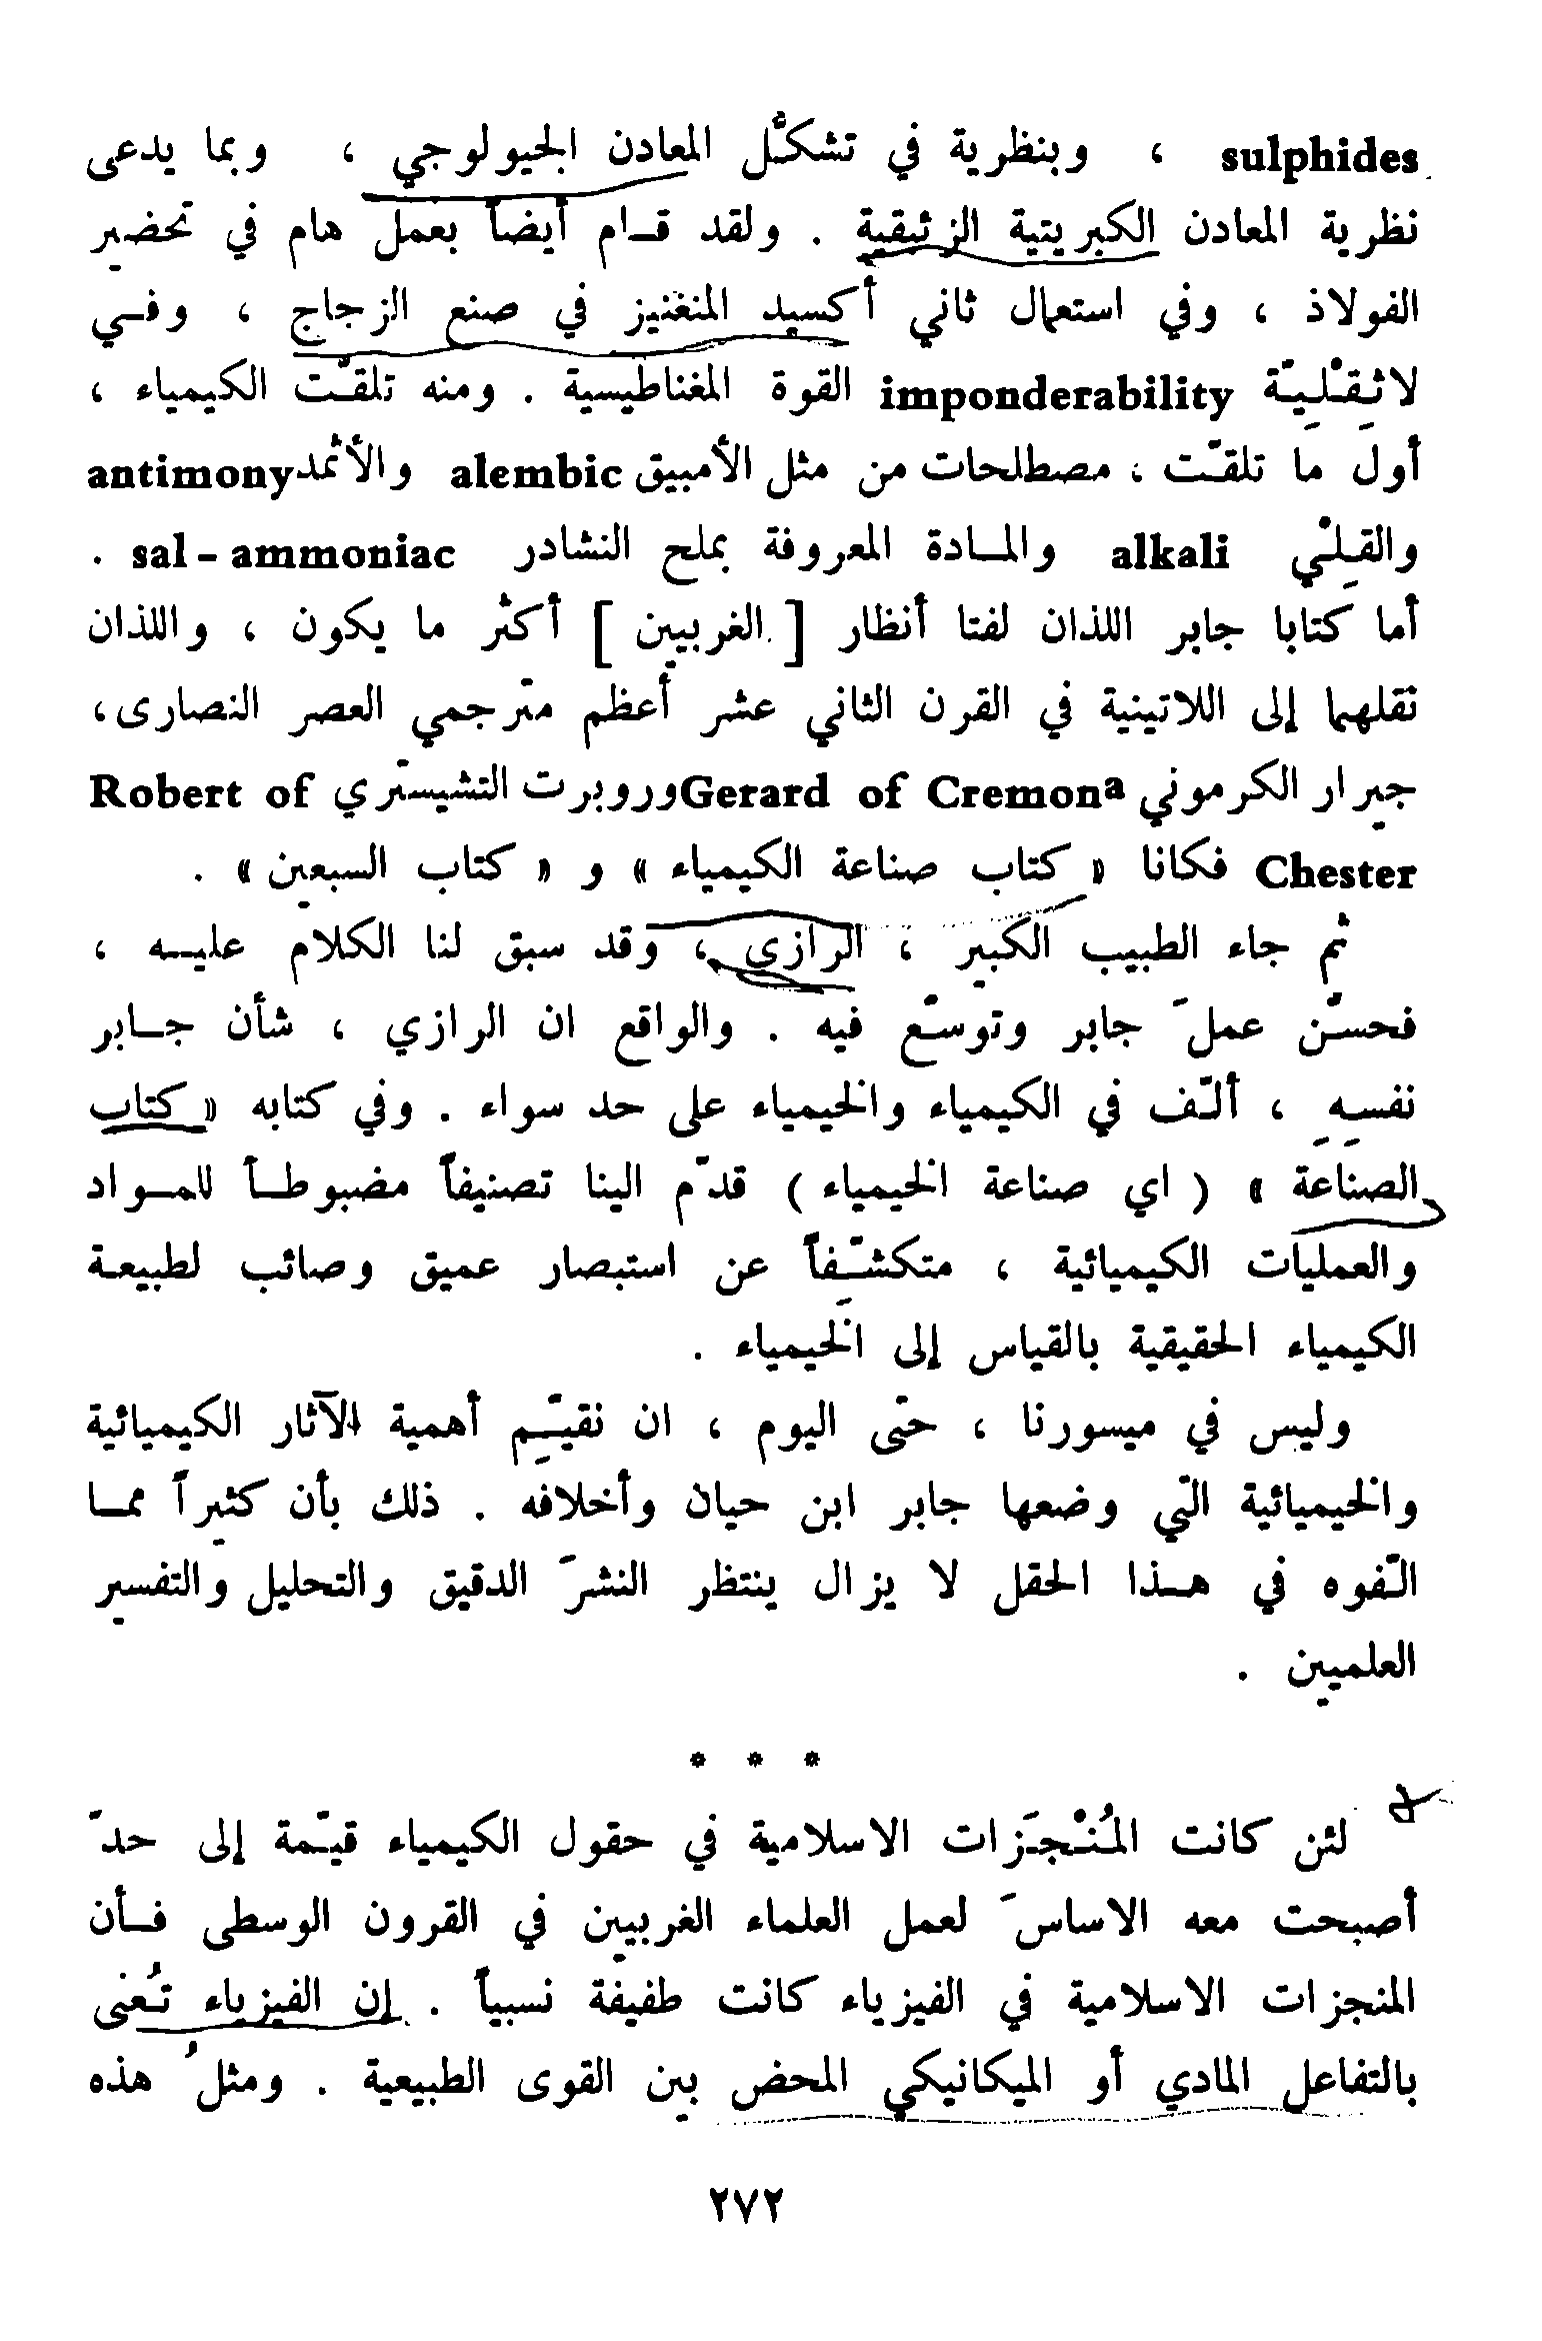 sulphides ، وبنظرية في تشكُّل المعادن الجيولوجي ، وبما يدعى
نظرية المعادن الكبريتية الزئبقية . ولقد قـام أيضاً بعمل هام في تحضير
الفولاذ ، وفي استعمال ثاني أكسيد المنغنيز في صنع الزجاج ، وفـي
لاثِقْلِيّة imponderability القوة المغناطيسية . ومنه تلقّت الكيمياء ،
أول ما تلقّت ، مصطلحات من مثل الأمبيق alembic والأثْمد antimony
والقِلْي alkali والمـادة المعروفة بملح النشادر sal - ammoniac .
أما كتابا جابر اللذان لفتا أنظار [ الغربيين ] أكثر ما يكون ، واللذان
نقلهما إلى اللاتينية في القرن الثاني عشر أعظم مترجمي العصر النصارى،
جيرار الكرموني Gerard of Cremona وروبرت التشيستري Robert of
Chester فكانا « كتاب صناعة الكيمياء » و « كتاب السبعين » .
ثم جاء الطبيب الكبير ، الرازي ، وقد سبق لنا الكلام عليـه ،
فحسّن عملَ جابر وتوسّع فيه . والواقع ان الرازي ، شأن جـابر
نفسِهِ ، ألّف في الكيمياء والخيمياء على حد سواء . وفي كتابه « كتاب
الصناعة » ( اي صناعة الخيمياء ) قدّم الينا تصنيفاً مضبوطـاً للمـواد
والعمليات الكيميائية ، متكشِّفاً عن استبصار عميق وصائب لطبيعـة
الكيمياء الحقيقية بالقياس إلى الخيمياء .
وليس في ميسورنا ، حتى اليوم ، ان نقيّم أهمية الآثار الكيميائية
والخيميائية التي وضعها جابر ابن حيان وأخلافه . ذلك بأن كثيراً ممـا
الّفوه في هـذا الحقل لا يزال ينتظر النشرَ الدقيق والتحليل والتفسير
العلميين .
* * *
لئن كانت المُنْجَزات الاسلامية في حقول الكيمياء قيّمة إلى حدّ
أصبحت معه الاساسَ لعمل العلماء الغربيين في القرون الوسطى فـأن
المنجزات الاسلامية في الفيزياء كانت طفيفة نسبياً . إن الفيزياء تُعنى
بالتفاعل المادي أو الميكانيكي المحض بين القوى الطبيعية . ومثلُ هذه
٢٧٢